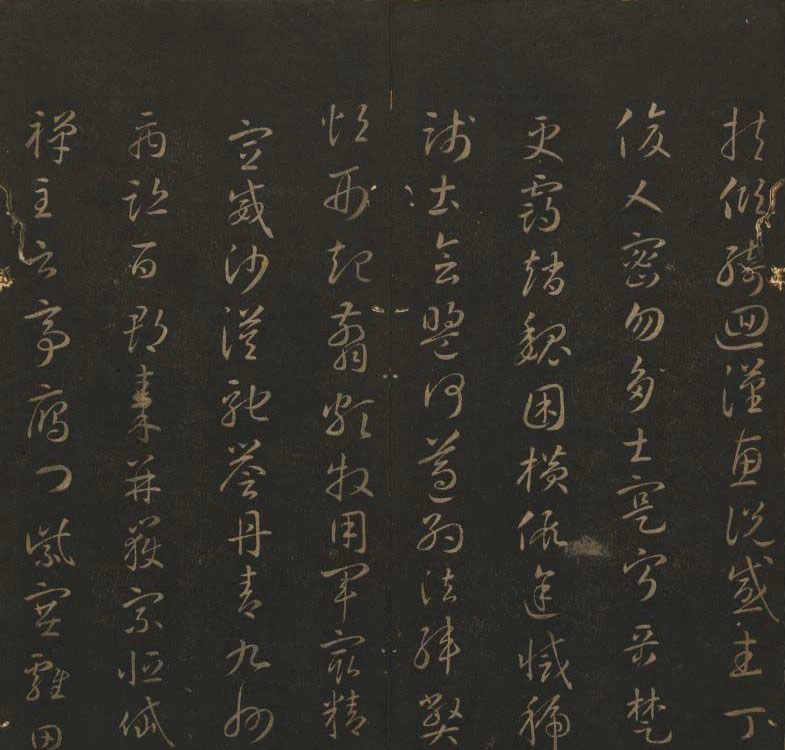 扶傾綺迴漢惠說感武丁
俊乂密勿多士寔寧晉楚
更霸趙魏困橫假途滅虢
踐土會盟何遵約法韓弊
煩刑起翦頗牧用軍最精
宣威沙漠馳譽丹青九州
禹跡百郡秦并嶽宗恒岱
禪主云亭雁門紫塞雞田